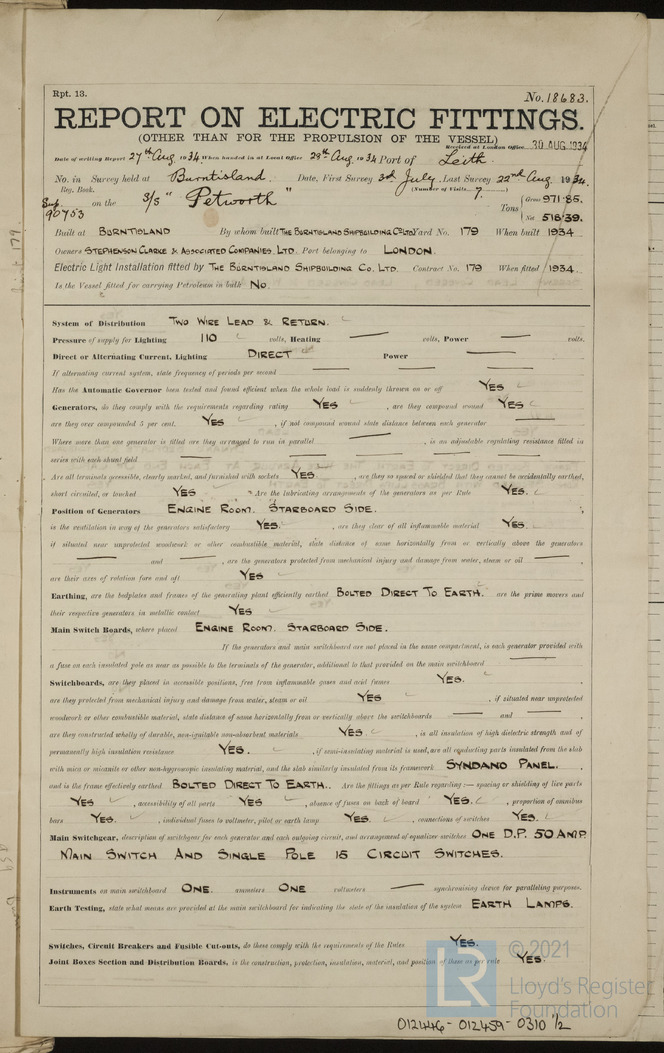 Rpt. 13.
No. 18683.
REPORT ON ELECTRIC FITTINGS.
(OTHER THAN FOR THE PROPULSION OF THE VESSEL)
Received at London Office 30 AUG 1934
Date of writing Report 27th Aug. 1934. When handed in at Local Office 28th Aug. 1934 Port of Leith.
No. in Survey held at Burntisland. Date, First Survey 3rd July. Last Survey 22nd Aug. 1934.
Reg. Book. (Number of Visits 7.)
Sup. 90753 on the S/S "Petworth"
Tons { Gross 971.85. Net 518.39.
Built at BURNTISLAND By whom built THE BURNTISLAND SHIPBUILDING CO LTD Yard No. 179 When built 1934
Owners STEPHENSON CLARKE & ASSOCIATED COMPANIES. LTD. Port belonging to LONDON.
Electric Light Installation fitted by THE BURNTISLAND SHIPBUILDING CO. LTD. Contract No. 179 When fitted 1934.
Is the Vessel fitted for carrying Petroleum in bulk NO.
System of Distribution TWO WIRE LEAD & RETURN.
Pressure of supply for Lighting 110 volts, Heating — volts, Power — volts.
Direct or Alternating Current, Lighting DIRECT Power —
If alternating current system, state frequency of periods per second —
Has the Automatic Governor been tested and found efficient when the whole load is suddenly thrown on or off YES
Generators, do they comply with the requirements regarding rating YES, are they compound wound YES
are they over compounded 5 per cent. YES, if not compound wound state distance between each generator —
Where more than one generator is fitted are they arranged to run in parallel —, is an adjustable regulating resistance fitted in
series with each shunt field — — — —
Are all terminals accessible, clearly marked, and furnished with sockets YES., are they so spaced or shielded that they cannot be accidentally earthed,
short circuited, or touched YES Are the lubricating arrangements of the generators as per Rule YES.
Position of Generators ENGINE ROOM. STARBOARD SIDE.
is the ventilation in way of the generators satisfactory YES. are they clear of all inflammable material YES.
if situated near unprotected woodwork or other combustible material, state distance of same horizontally from or vertically above the generators
— and —, are the generators protected from mechanical injury and damage from water, steam or oil —,
are their axes of rotation fore and aft YES
Earthing, are the bedplates and frames of the generating plant efficiently earthed BOLTED DIRECT TO EARTH. are the prime movers and
their respective generators in metallic contact YES
Main Switch Boards, where placed ENGINE ROOM. STARBOARD SIDE.
If the generators and main switchboard are not placed in the same compartment, is each generator provided with
a fuse on each insulated pole as near as possible to the terminals of the generator, additional to that provided on the main switchboard —
Switchboards, are they placed in accessible positions, free from inflammable gases and acid fumes YES.,
are they protected from mechanical injury and damage from water, steam or oil YES, if situated near unprotected
woodwork or other combustible material, state distance of same horizontally from or vertically above the switchboards — and —,
are they constructed wholly of durable, non-ignitable non-absorbent materials YES., is all insulation of high dielectric strength and of
permanently high insulation resistance YES., if semi-insulating material is used, are all conducting parts insulated from the slab
with mica or micanite or other non-hygroscopic insulating material, and the slab similarly insulated from its framework SYNDANO PANEL.,
and is the frame effectively earthed BOLTED DIRECT TO EARTH. Are the fittings as per Rule regarding:— spacing or shielding of live parts
YES, accessibility of all parts YES, absence of fuses on back of board YES., proportion of omnibus
bars YES., individual fuses to voltmeter, pilot or earth lamp YES., connections of switches YES.
Main Switchgear, description of switchgear for each generator and each outgoing circuit, and arrangement of equalizer switches ONE D.P. 50 AMP.
MAIN SWITCH AND SINGLE POLE 15 CIRCUIT SWITCHES.
Instruments on main switchboard ONE. ammeters ONE voltmeters — synchronising device for paralleling purposes.
Earth Testing, state what means are provided at the main switchboard for indicating the state of the insulation of the system EARTH LAMPS.
Switches, Circuit Breakers and Fusible Cut-outs, do these comply with the requirements of the Rules YES.
Joint Boxes Section and Distribution Boards, is the construction, protection, insulation, material, and position of these as per rule YES.
LR
© 2021
Lloyd's Register
Foundation
012446-012459-0310 1/2